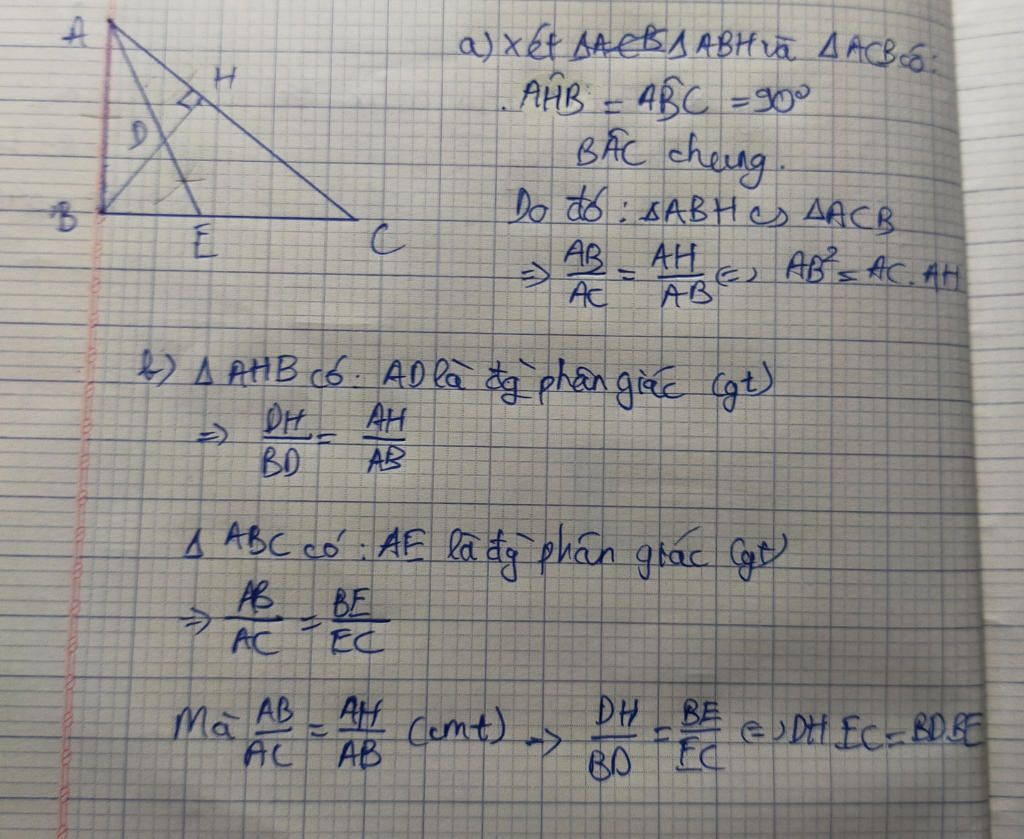 A
H
D
B
E
C
a) Xét ΔACB ΔABH và ΔACB có:
AĤB = AB̂C = 90°
BÂC chung.
Do đó: ΔABH ∽ ΔACB
⇒ AB/AC = AH/AB ⇔ AB² = AC.AH
b) Δ AHB có: AD là đg` phân giác (gt)
⇒ DH/BD = AH/AB
Δ ABC có: AE là đg` phân giác (gt)
⇒ AB/AC = BE/EC
Mà AB/AC = AH/AB (cmt) ⇒ DH/BD = BE/EC ⇔ DH.EC = BD.BE